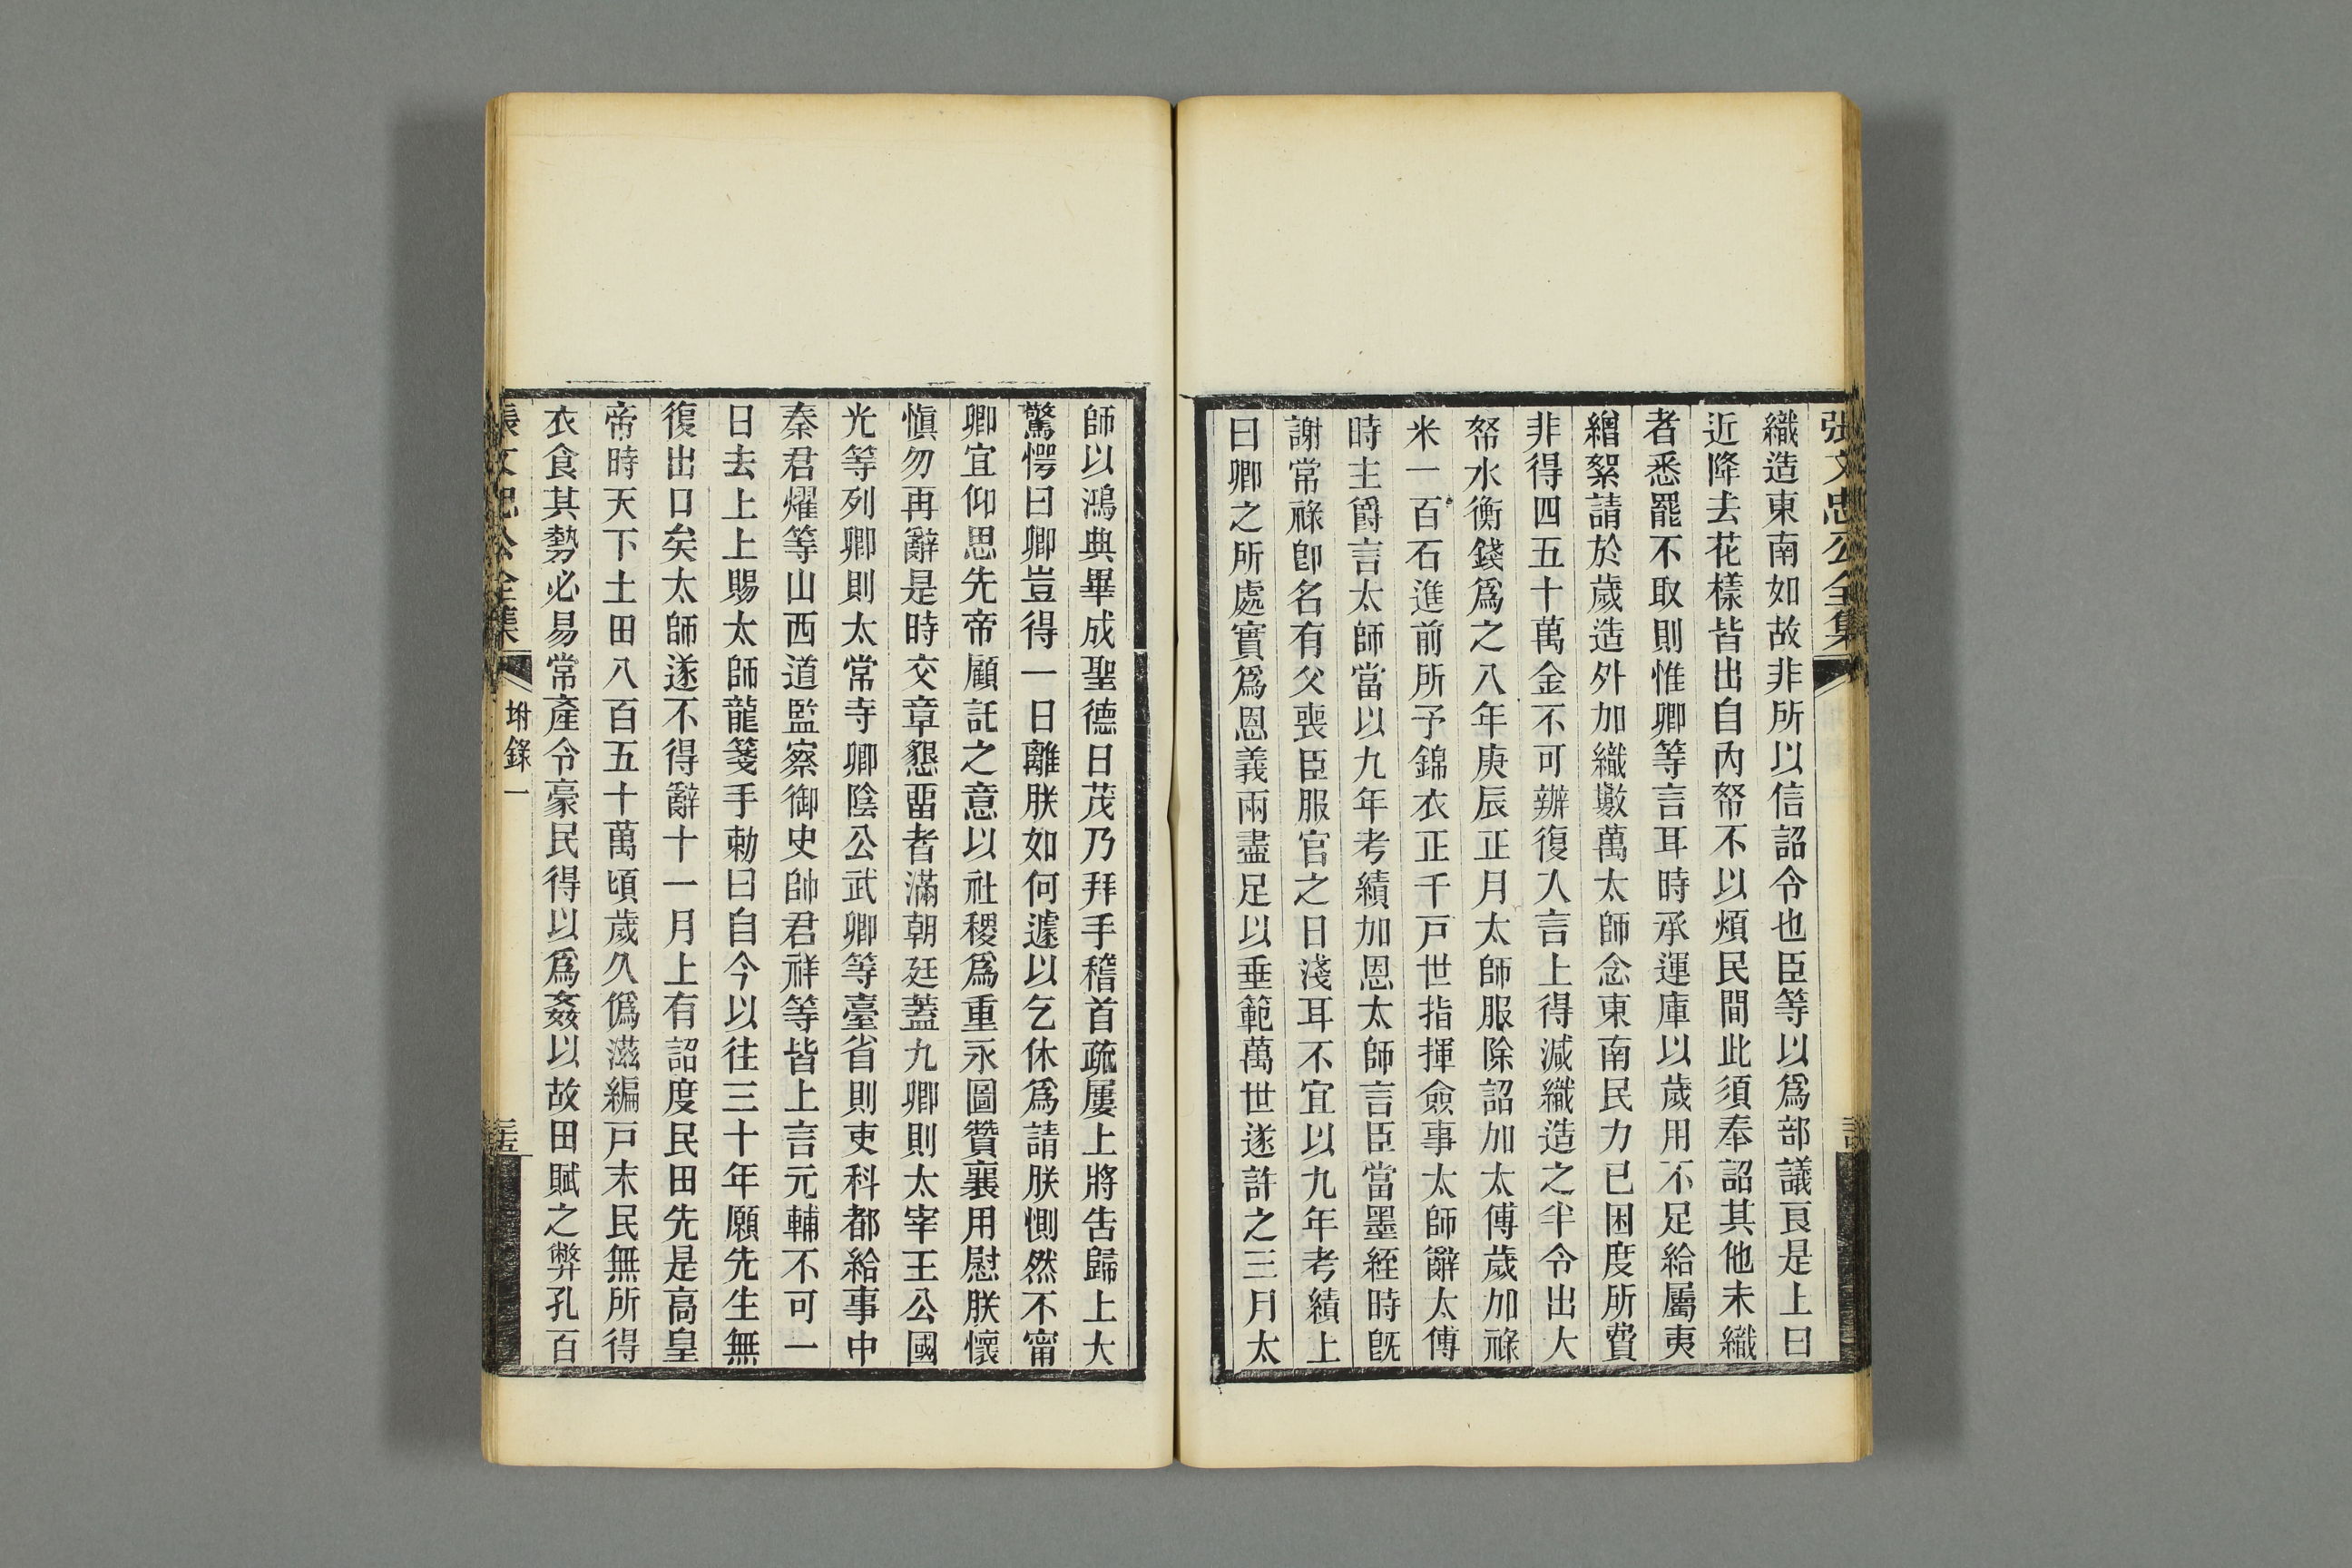 張文忠公全集
織造東南如故非所以信詔令也臣等以爲部議良是上曰
近降去花樣皆出自內帑不以煩民間此須奉詔其他未織
者悉罷不取則惟卿等言耳時承運庫以歲用不足給屬夷
繒絮請於歲造外加織數萬太師念東南民力已困度所費
非得四五十萬金不可辦復入言上得減織造之半令出大
帑水衡錢爲之八年庚辰正月太師服除詔加太傅歲加祿
米一百石進前所予錦衣正千戸世指揮僉事太師辭太傅
時主爵言太師當以九年考績加恩太師言臣當墨絰時旣
謝常祿卽名有父喪臣服官之日淺耳不宜以九年考績上
曰卿之所處實爲恩義兩盡足以垂範萬世遂許之三月太
師以鴻典畢成聖德日茂乃拜手稽首疏屢上將吿歸上大
驚愕曰卿豈得一日離朕如何遽以乞休爲請朕惻然不甯
卿宜仰思先帝顧託之意以社稷爲重永圖贊襄用慰朕懷
愼勿再辭是時交章懇畱者滿朝廷蓋九卿則太宰王公國
光等列卿則太常寺卿陰公武卿等臺省則吏科都給事中
秦君燿等山西道監察御史帥君祥等皆上言元輔不可一
日去上上賜太師龍箋手勅曰自今以往三十年願先生無
復出口矣太師遂不得辭十一月上有詔度民田先是高皇
帝時天下土田八百五十萬頃歲久僞滋編戸末民無所得
衣食其勢必易常產令豪民得以爲姦以故田賦之弊孔百
張文忠公全集
坿錄一